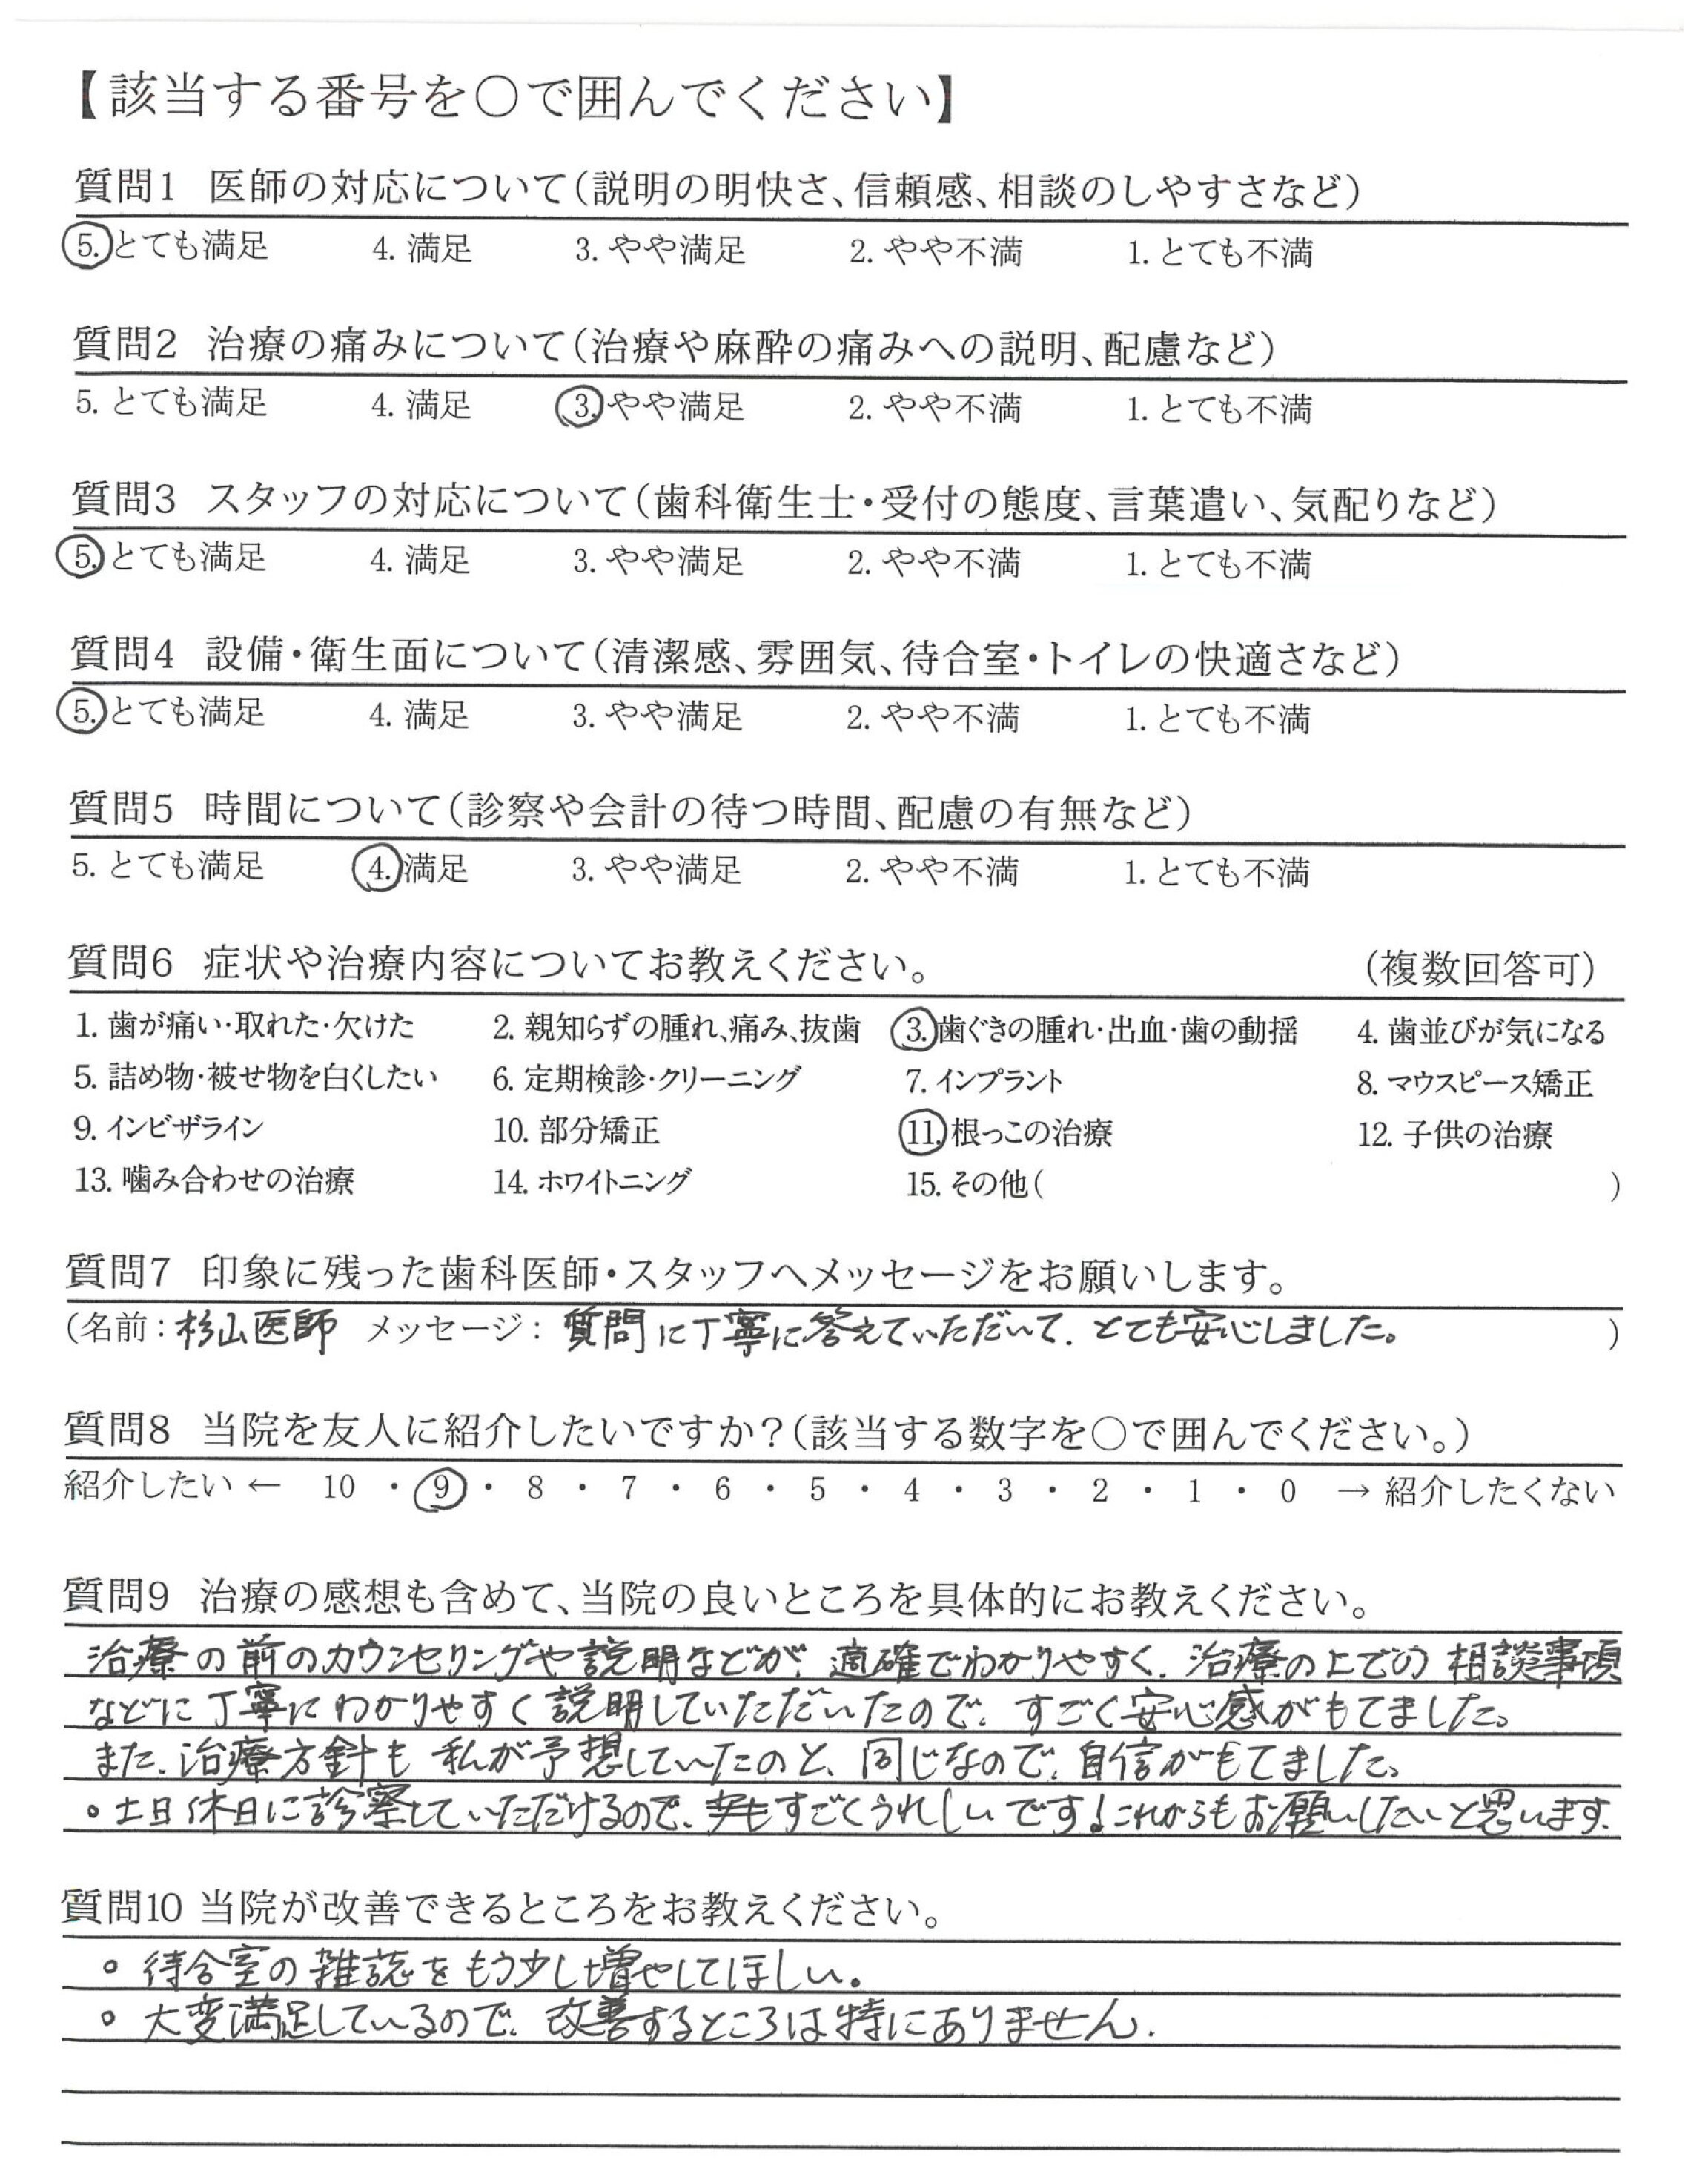 【該当する番号を○で囲んでください】
質問1 医師の対応について(説明の明快さ、信頼感、相談のしやすさなど)
5. とても満足 4. 満足 3. やや満足 2. やや不満 1. とても不満
質問2 治療の痛みについて(治療や麻酔の痛みへの説明、配慮など)
5. とても満足 4. 満足 3. やや満足 2. やや不満 1. とても不満
質問3 スタッフの対応について(歯科衛生士・受付の態度、言葉遣い、気配りなど)
5. とても満足 4. 満足 3. やや満足 2. やや不満 1. とても不満
質問4 設備・衛生面について(清潔感、雰囲気、待合室・トイレの快適さなど)
5. とても満足 4. 満足 3. やや満足 2. やや不満 1. とても不満
質問5 時間について(診察や会計の待つ時間、配慮の有無など)
5. とても満足 4. 満足 3. やや満足 2. やや不満 1. とても不満
質問6 症状や治療内容についてお教えください。 (複数回答可)
1. 歯が痛い・取れた・欠けた 2. 親知らずの腫れ、痛み、抜歯 3. 歯ぐきの腫れ・出血・歯の動揺 4. 歯並びが気になる
5. 詰め物・被せ物を白くしたい 6. 定期検診・クリーニング 7. インプラント 8. マウスピース矯正
9. インビザライン 10. 部分矯正 11. 根っこの治療 12. 子供の治療
13. 噛み合わせの治療 14. ホワイトニング 15. その他( )
質問7 印象に残った歯科医師・スタッフへメッセージをお願いします。
(名前:杉山医師 メッセージ:質問に丁寧に答えていただいて、とても安心しました。 )
質問8 当院を友人に紹介したいですか?(該当する数字を○で囲んでください。)
紹介したい ← 10 ・ 9 ・ 8 ・ 7 ・ 6 ・ 5 ・ 4 ・ 3 ・ 2 ・ 1 ・ 0 → 紹介したくない
質問9 治療の感想も含めて、当院の良いところを具体的にお教えください。
治療の前のカウンセリングや説明などが、適確でわかりやすく、治療の上での相談事項
などに丁寧にわかりやすく説明していただいたので、すごく安心感がもてました。
また、治療方針も私が予想していたのと、同じなので、自信がもてました。
○土日休日に診察していただけるので、すごくうれしいです!これからもお願いしたいと思います.
質問10 当院が改善できるところをお教えください。
○ 待合室の雑誌をもう少し増やしてほしい。
○ 大変満足しているので、改善するところは特にありません.